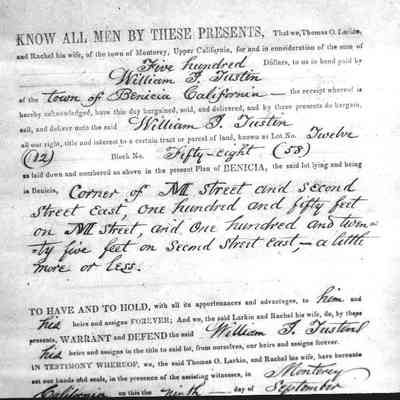 KNOW ALL MEN BY THESE PRESENTS, That we, Thomas O. Larkin,
and Rachel his wife, of the town of Monterey, Upper California, for and in consideration of the sum of
Five hundred Dollars, to us in hand paid by
William I. Tustin
of the town of Benicia California — the receipt whereof is
hereby acknowledged, have this day bargained, sold, and delivered, and by these presents do bargain,
sell, and deliver unto the said William I. Tustin
all our right, title and interest to a certain tract or parcel of land, known as Lot No. Twelve
(12) Block No. Fifty-Eight (58)
as laid down and numbered as above in the present Plan of BENICIA, the said lot lying and being
in Benicia, Corner of M Street and Second
Street East, One hundred and fifty feet
on M Street, and One hundred and twen-
ty five feet on Second Street East, — a little
more or less.
TO HAVE AND TO HOLD, with all its appurtenances and advantages, to him and
his heirs and assigns FOREVER; And we, the said Larkin and Rachel his wife, do, by these
presents, WARRANT and DEFEND the said William I. Tustin
his heirs and assigns in the title to said lot, from ourselves, our heirs and assigns forever.
IN TESTIMONY WHEREOF, we, the said Thomas O. Larkin, and Rachel his wife, have hereunto
set our hands and seals, in the presence of the assisting witnesses, in Monterey
California on this the Ninth — day of September